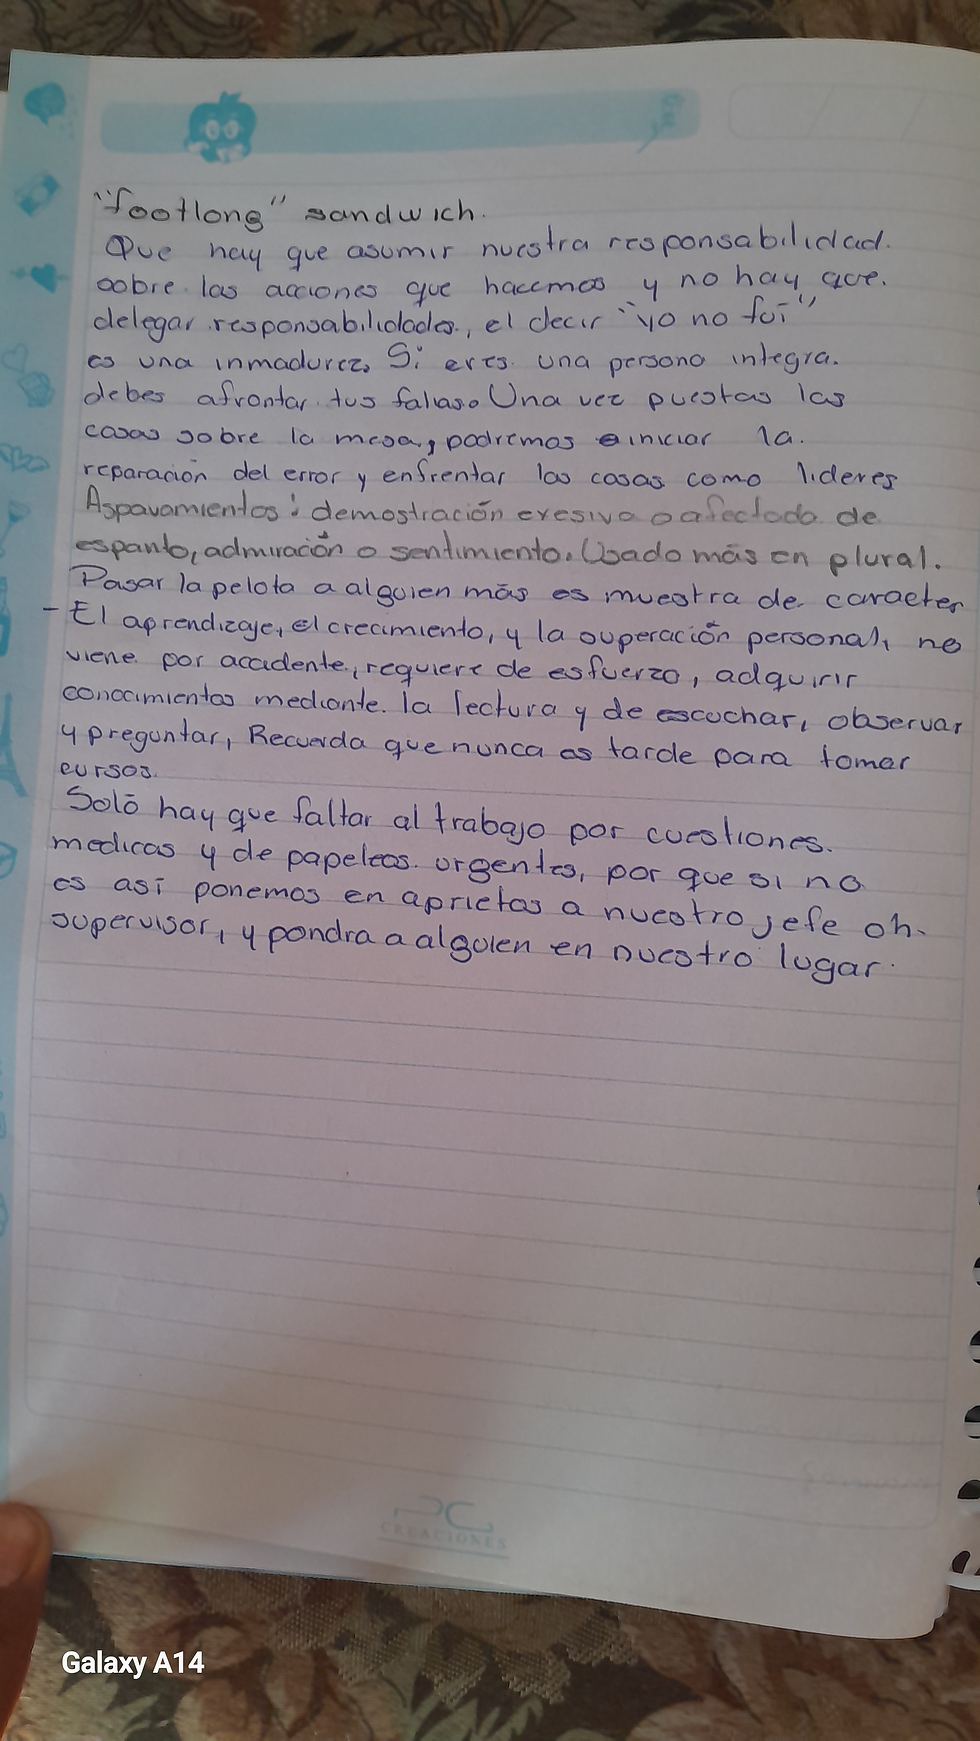 "footlong" sandwich.
Que hay que asumir nuestra responsabilidad.
sobre las acciones que hacemos y no hay que.
delegar responsabilidades, el decir "yo no fuí"
es una inmadurez. Si eres una persona integra.
debes afrontar tus fallas. Una vez puestas las
cosas sobre la mesa, podremos iniciar la.
reparación del error y enfrentar las cosas como lideres
Aspavamientos: demostración exesiva o afectada de
espanto, admiración o sentimiento. Usado más en plural.
Pasar la pelota a alguien más es muestra de caracter
- El aprendizaje, el crecimiento, y la superación personal, no
viene por accidente, requiere de esfuerzo, adquirir
conocimientos mediante la lectura y de escuchar, observar
y preguntar, Recuerda que nunca es tarde para tomar
cursos.
Soló hay que faltar al trabajo por cuestiones.
medicas y de papeleos urgentes, por que si no
es así ponemos en aprietos a nuestro jefe oh.
supervisor, y pondra a alguien en nuestro lugar.
CREACIONES
Galaxy A14